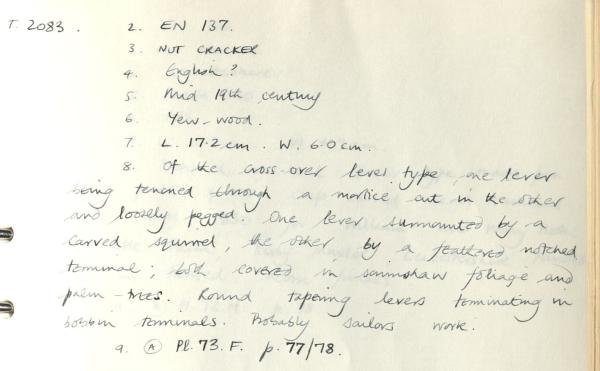 T. 2083. 2. EN 137.
3. NUT CRACKER
4. English?
5. Mid 19th century
6. Yew-wood.
7. L. 17.2 cm. W. 6.0 cm.
8. Of the cross-over lever type, one lever
being tenoned through a mortice cut in the other
and loosely pegged. One lever surmounted by a
carved squirrel, the other by a feathered notched
terminal; both covered in scrimshaw foliage and
palm-trees. Round tapering levers terminating in
bobbin terminals. Probably sailors work.
9. A Pl. 73. F. p. 77/78.